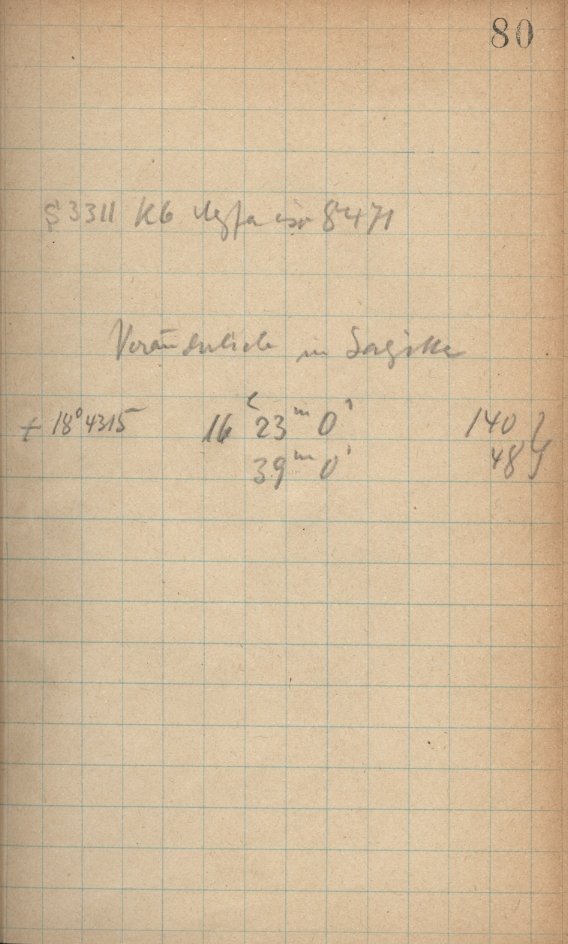 80
S 3311 K6 8471
Veränderliche in Sagitta
+ 18° 4315 16 23ᵐ 0ˢ 140 }
39ᵐ 0ˢ 48